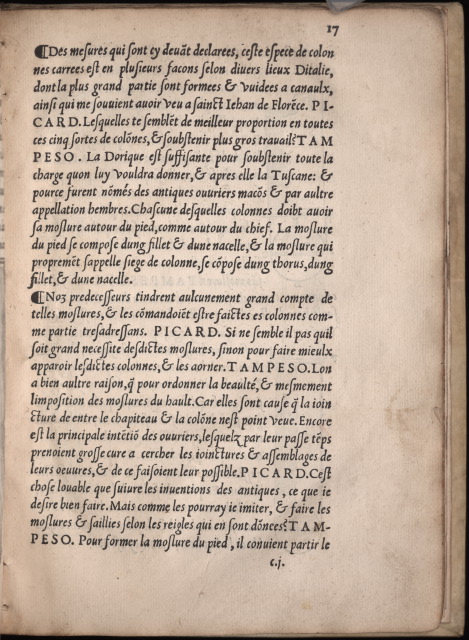 17
¶Des mesures qui sont cy devāt declarees, ceste espece de colon
nes carrees est en plusieurs facons selon divers lieux Ditalie,
dont la plus grand partie sont formees & vuidees a canaulx,
ainsi qui me souvient avoir veu a sainct Iehan de Florēce. PI-
CARD. Lesquelles te semblēt de meilleur proportion en toutes
ces cinq sortes de colōnes, & soubstenir plus gros travail? TAM
PESO. La Dorique est suffisante pour soubstenir toute la
charge quon luy vouldra donner, & apres elle la Tuscane: &
pource furent nōmés des antiques ouuriers macōs & par aultre
appellation hembres. Chascune desquelles colonnes doibt avoir
sa moslure autour du pied, comme autour du chief. La moslure
du pied se compose dung fillet & dune nacelle, & la moslure qui
propremēt sappelle siege de colonne, se cōpose dung thorus, dung
fillet, & dune nacelle.
¶Noz predecesseurs tindrent aulcunement grand compte de
telles moslures, & les cōmandoiēt estre faictes es colonnes com-
me partie tresadressans. PICARD. Si ne semble il pas quil
soit grand necessite desdictes moslures, sinon pour faire mieulx
apparoir lesdictes colonnes, & les aorner. TAMPESO. Lon
a bien aultre raison, q̄ pour ordonner la beaulté, & mesmement
limposition des moslures du hault. Car elles sont cause q̄ la ioin
cture de entre le chapiteau & la colōne nest point veue. Encore
est la principale intētiō des ouuriers, lesquelz par leur passe tēps
prenoient grosse cure a cercher les ioinctures & assemblages de
leurs oeuures, & de ce faisoient leur possible. PICARD. Cest
chose louable que suiure les inuentions des antiques, ce que ie
desire bien faire. Mais comme les pourray ie imiter, & faire les
moslures & saillies selon les reigles qui en sont dōnces? TAM-
PESO. Pour former la moslure du pied, il conuient partir le
c.j.